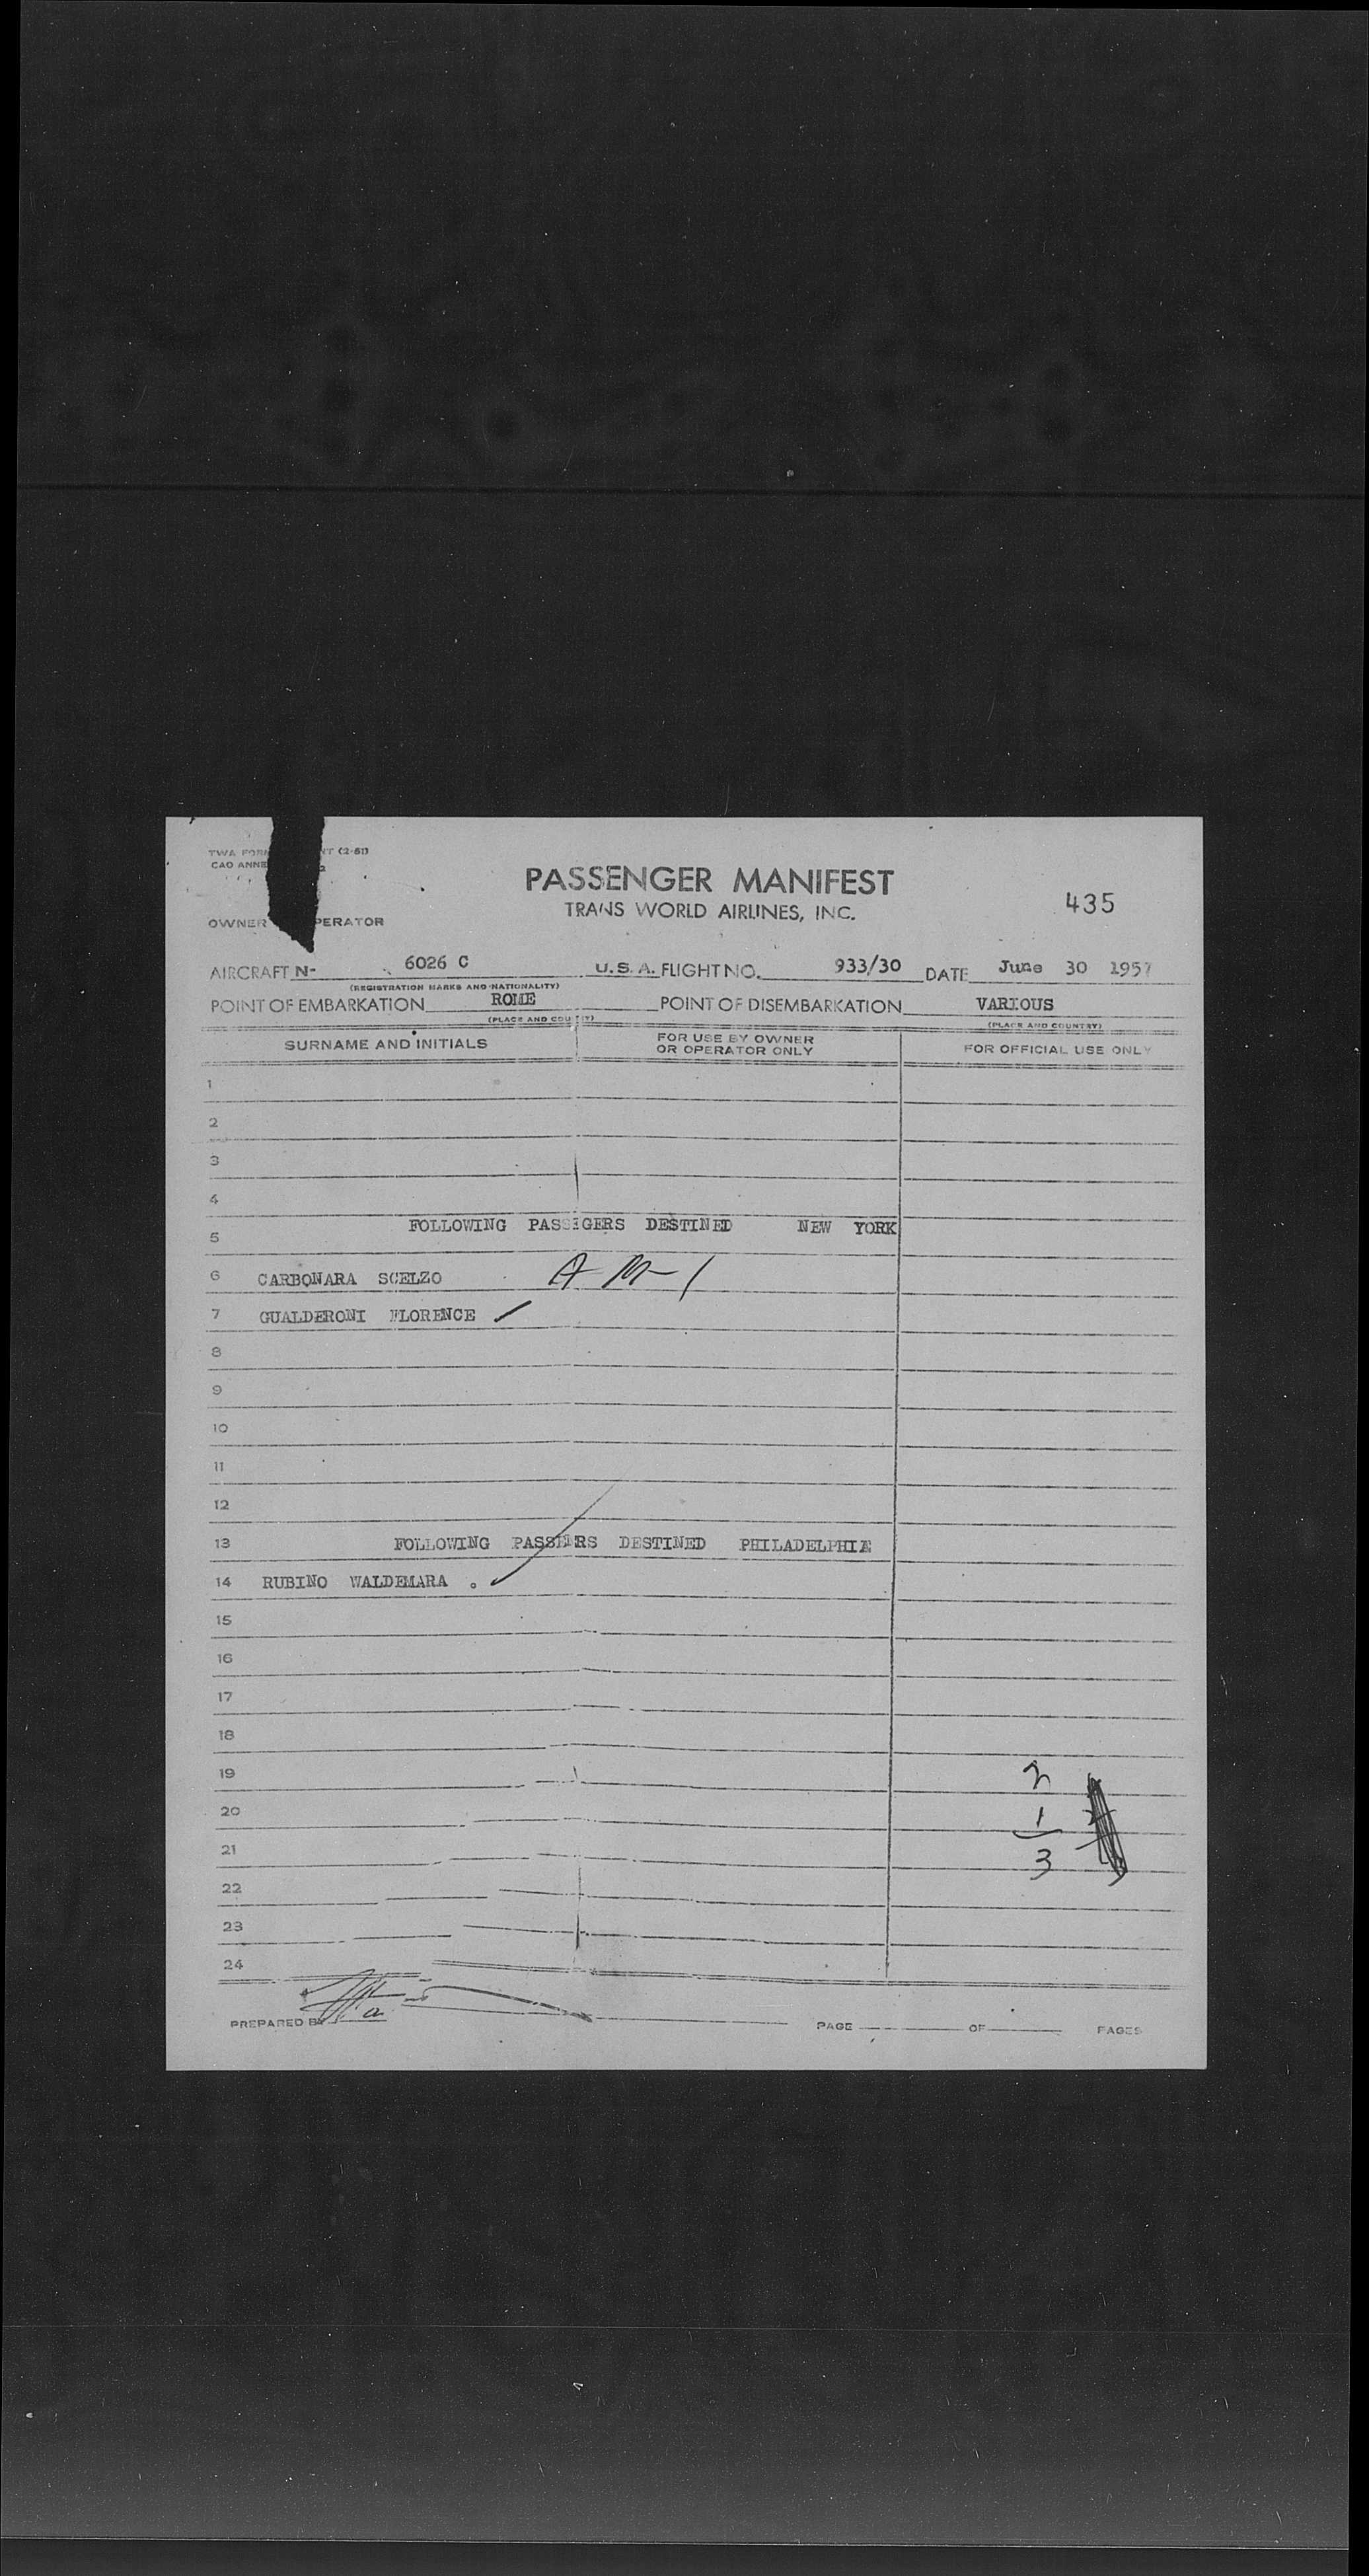 TWA FORM NT (2-51)
CAO ANNE 2
PASSENGER MANIFEST
TRANS WORLD AIRLINES, INC.
435
OWNER PERATOR
AIRCRAFT N- 6026 C U. S. A. FLIGHT NO. 933/30 DATE June 30 1957
(REGISTRATION MARKS AND NATIONALITY)
POINT OF EMBARKATION ROME POINT OF DISEMBARKATION VARIOUS
(PLACE AND COUNTRY) (PLACE AND COUNTRY)
SURNAME AND INITIALS FOR USE BY OWNER OR OPERATOR ONLY FOR OFFICIAL USE ONLY
1
2
3
4
5 FOLLOWING PASSEGERS DESTINED NEW YORK
6 CARBONARA SCELZO A M-1
7 GUALDERONI FLORENCE
8
9
10
11
12
13 FOLLOWING DESTINED PHILADELPHIA
14 RUBINO WALDEMARA .
15
16
17
18
19 2
20 1
21 3
22
23
24
PREPARED BY PAGE OF PAGES